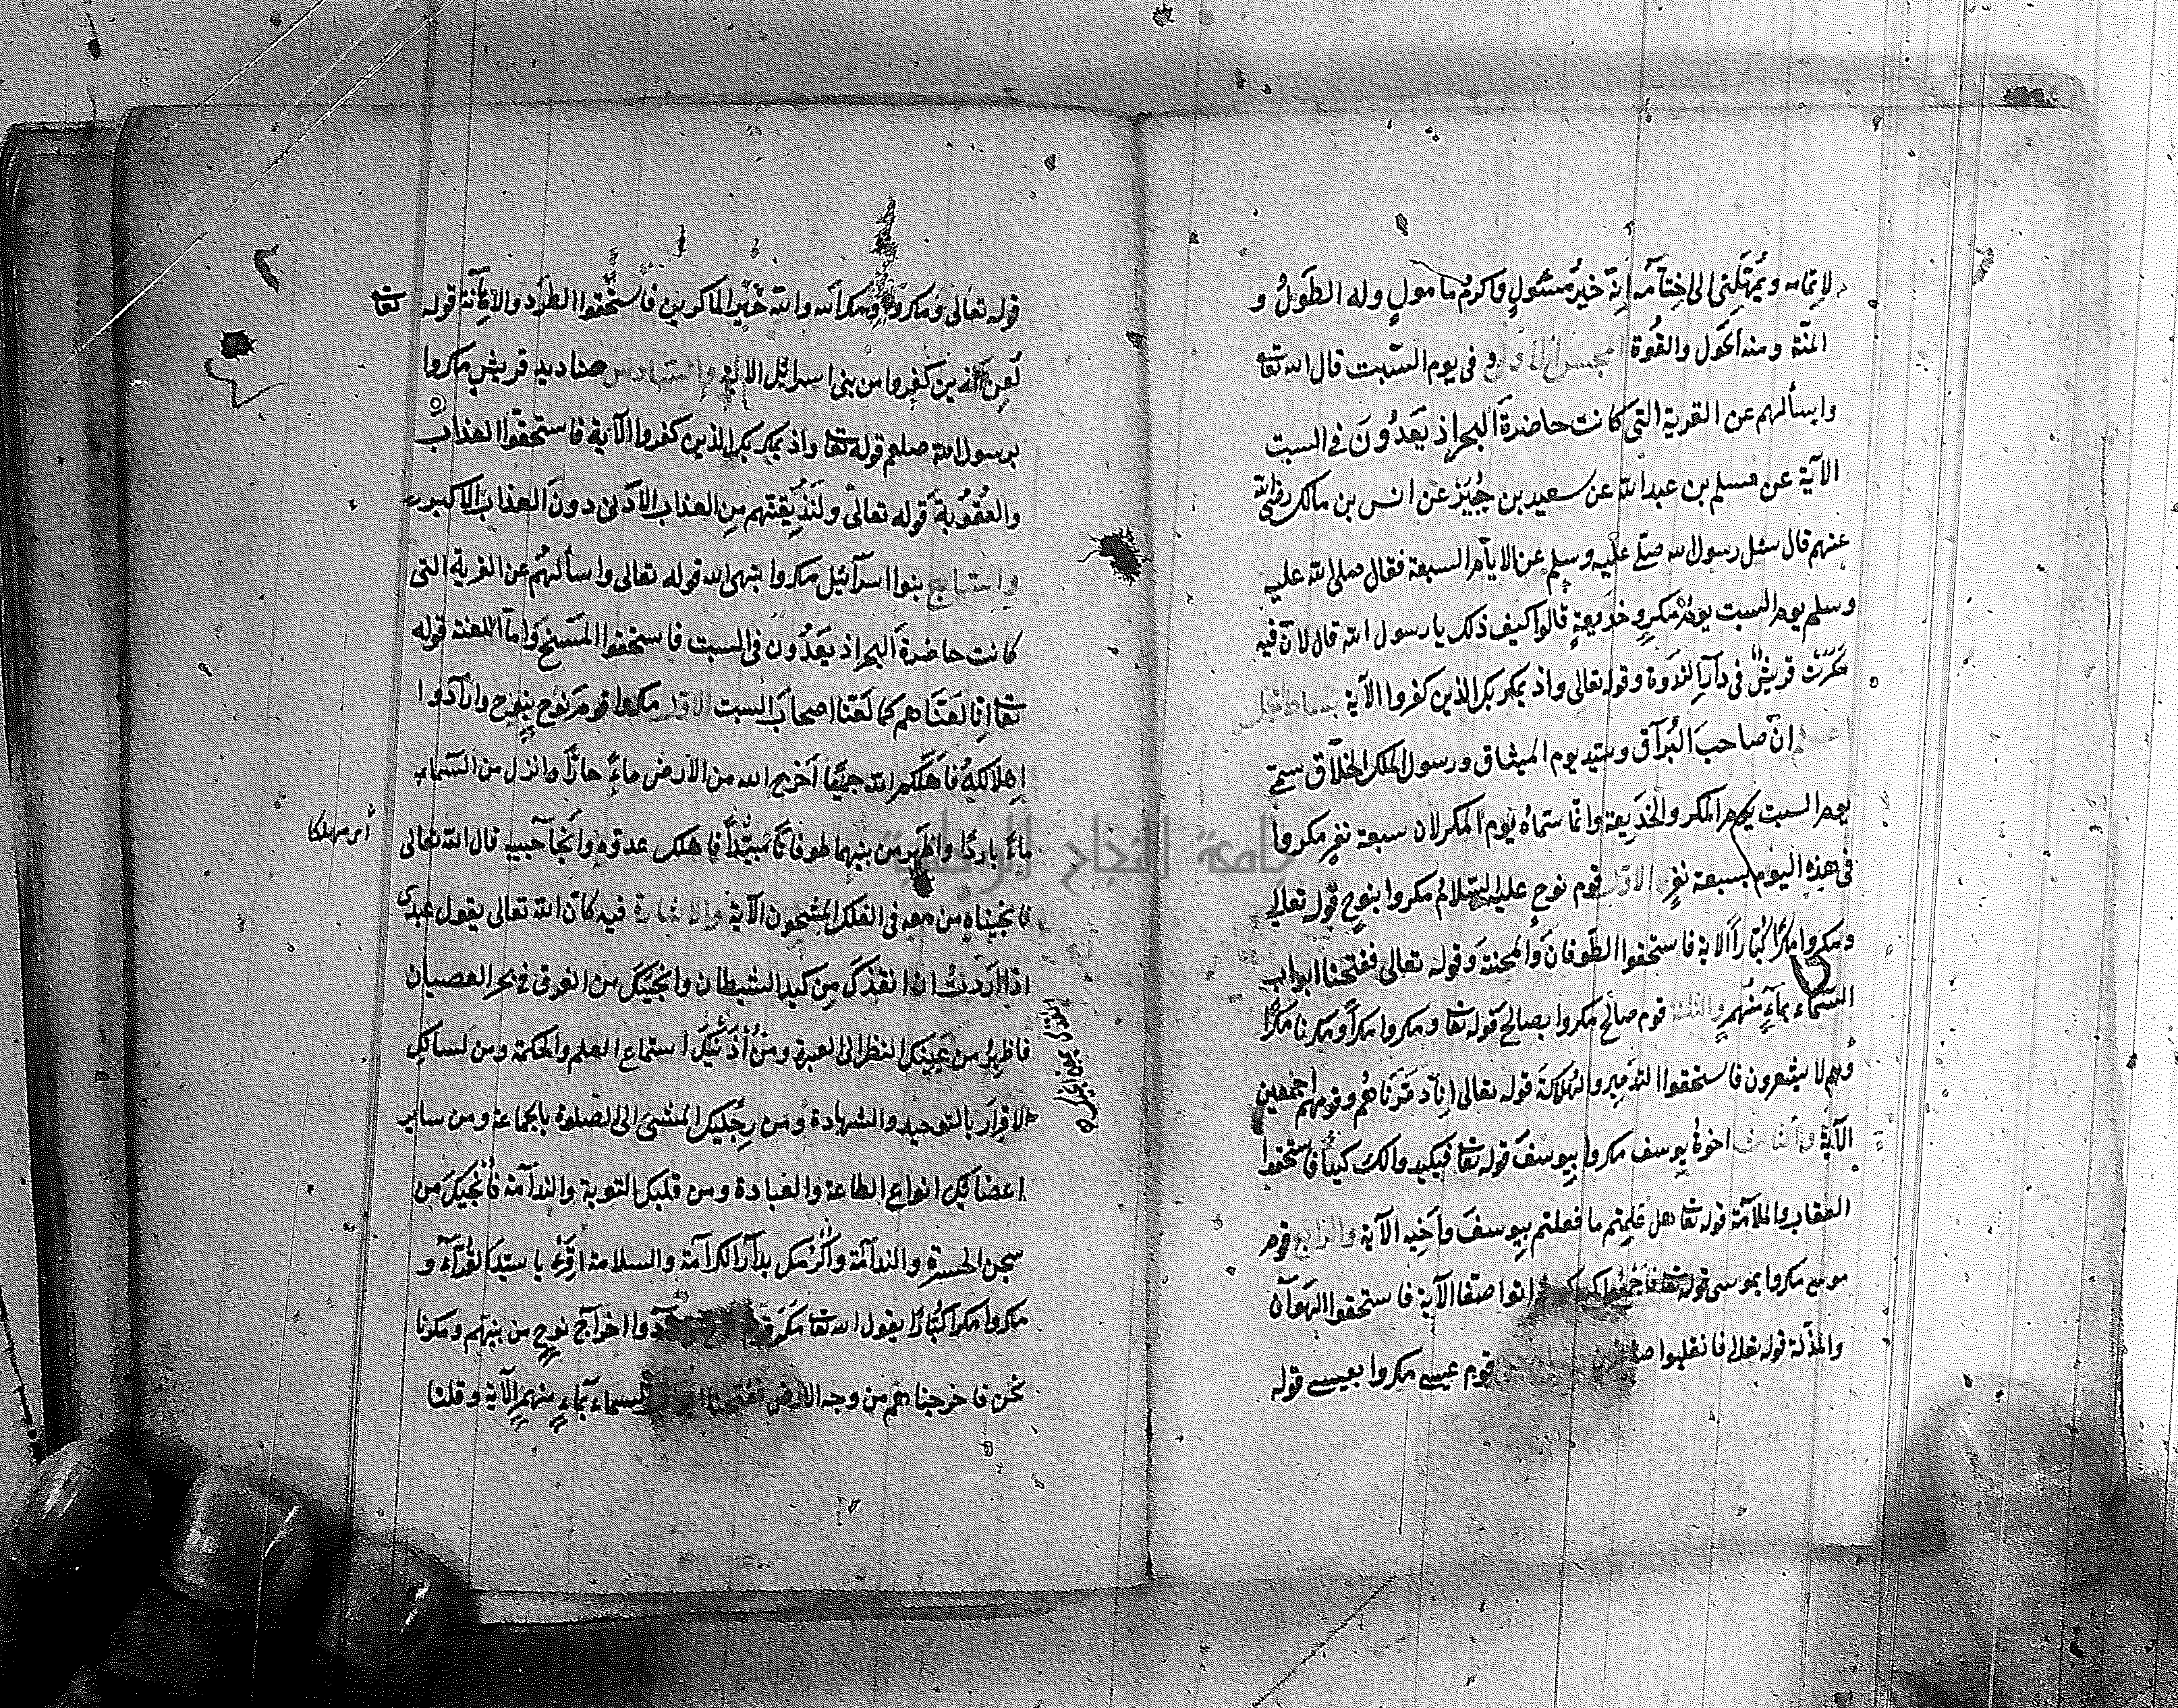 لاتمامه ويمهلني الى اختتامه انه خير مسئول واكرم مامول وله الطول و
المنة ومنه الحول والقوة المجلس الاول في يوم السبت قال الله تعا
واسألهم عن القرية التي كانت حاضرة البحر اذ يعدون في السبت
الآية عن مسلم بن عبد الله عن سعيد بن جبير عن انس بن مالك رضى الله
عنهم قال سئل رسول الله صلى عليه وسلم عن الايام السبعة فقال صلى الله عليه
وسلم يوم السبت يوم مكر وخديعة قالوا كيف ذلك يا رسول الله قال لان فيه
مكرت قريش في دار الندوة وقوله تعالى واذ يمكر بك الذين كفروا الآية بساط المجلس
ان صاحب البراق وسيد يوم الميثاق ورسول الملك الخلاق سمى
يوم السبت يوم المكر والخديعة وانما سماه يوم المكر لان سبعة نفر مكروا
في هذه اليوم بسبعة نفر الاول قوم نوح عليه السلام مكروا بنوح قوله تعالى
ومكروا مكرا كبارا الاية فاستحقوا الطوفان والمحنة وقوله تعالى ففتحنا ابواب
السماء بماء منهمر والثانى قوم صالح مكروا بصالح قوله تعا ومكروا مكرا ومكرنا مكرا
وهم لا يشعرون فاستحقوا التدمير والهلاكة قوله تعالى انا دمرناهم وقومهم اجمعين
الآية والثالث اخوة يوسف مكروا بيوسف قوله تعا فيكيدوا لك كيدا فاستحقوا
العقاب والملامة قوله تعا هل علمتم ما فعلتم بيوسف واخيه الآية والرابع قوم
موسى مكروا بموسى قوله تعا فاجمعوا كيدكم ثم ائتوا صفا الآية فاستحقوا الهوان
والمذلة قوله تعالى فانقلبوا قوم عيسى مكروا بعيسى قوله
قوله تعالى ومكروا ومكر الله والله خير الماكرين فاستحقوا الطرد والاهانة قوله تعا
لعن الذين كفروا من بنى اسرائيل الاية والسادس صناديد قريش مكروا
برسول الله صلعم قوله تعا واذ يمكر بك الذين كفروا الآية فاستحقوا العذاب
والعقوبة قوله تعالى ولنذيقنهم من العذاب الادنى دون العذاب الاكبر
والسابع بنوا اسرآئيل مكروا بنهى الله قوله تعالى واسألهم عن القرية التى
كانت حاضرة البحر اذ يعدون فى السبت فاستحقوا المسخ واما اللعنة قوله
تعا انا لعناهم كما لعنا اصحاب السبت الاول مكروا قوم نوح بنوح وارادوا
اهلاكه فاهلكهم الله جميعا اخرج الله من الارض ماء حارا وانزل من السماء
ماء باردا واظهر من بينهما طوفانا شديدا فاهلك عدوه وانجا حبيبه قال الله تعالى
فانجيناه من معه فى الفلك المشحون الآية والاشارة فيه كان الله تعالى يقول عبدى
اذا اردت ان انقذك من كيد الشيطان وانجيك من الغرق فى بحر العصيان
فاظهر من عينيك النظر الى العبرة ومن اذنيك استماع العلم والحكمة ومن لسانك
الاقرار بالتوحيد والشهادة ومن رجليك المشى الى الصلوة بالجماعة ومن ساير
اعضائك انواع الطاعة والعبادة ومن قلبك التوبة والندامة فانجيك من
سجن الحسرة والندامة واكرمك بدار الكرامة والسلامة اقرء يا سيد القراء و
مكروا مكرا كبارا يقول الله تعا مكر ارادوا اخراج نوح من بينهم ومكرنا
نحن فاخرجناهم من وجه الارض السماء بماء منهمر الآية وقلنا